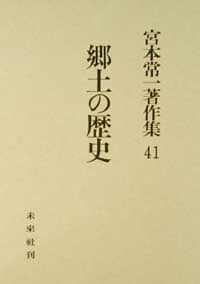 宮本常一著作集 41
郷土の歴史
未来社刊